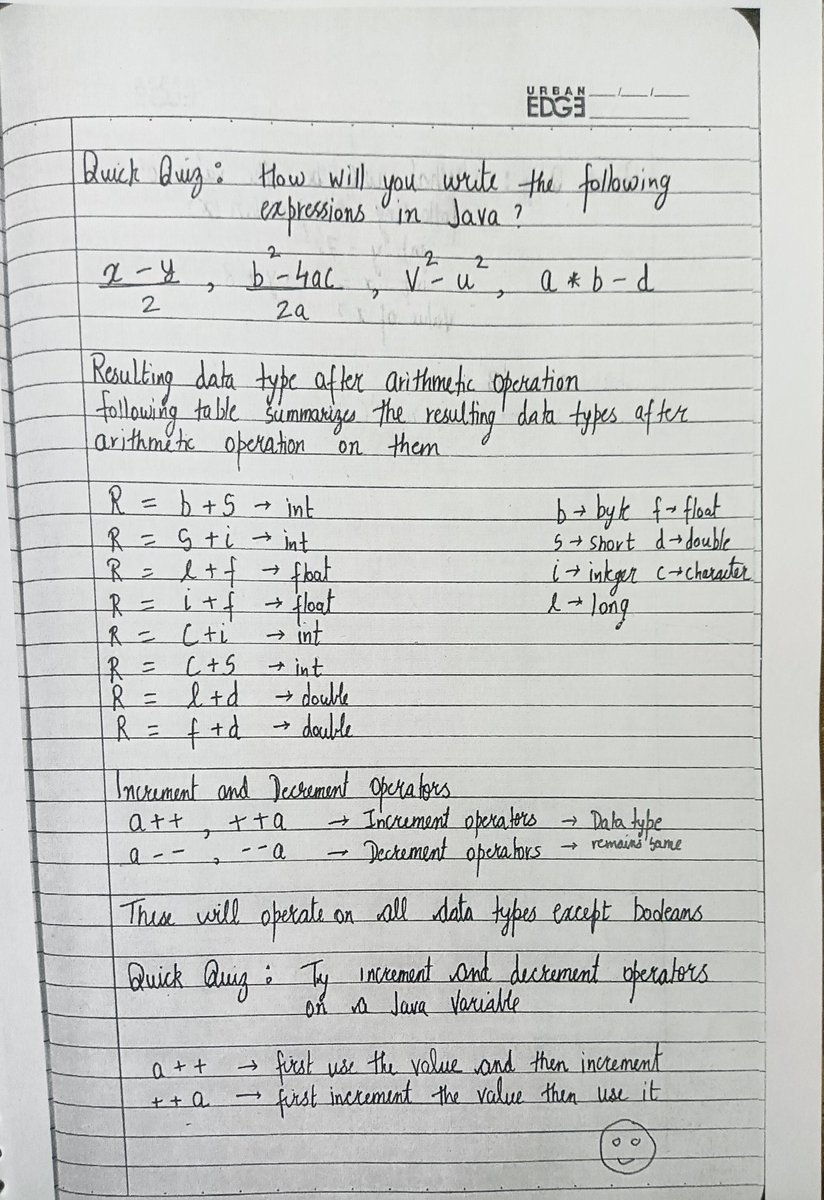 URBAN
EDGE __/__/__
Quick Quiz : How will you write the following
expressions in Java ?
x - y / 2 , b² - 4ac / 2a , v² - u² , a * b - d
Resulting data type after arithmetic operation
following table summarizes the resulting data types after
arithmetic operation on them
R = b + s → int b → byte f → float
R = s + i → int s → short d → double
R = l + f → float i → integer c → character
R = i + f → float l → long
R = c + i → int
R = c + s → int
R = l + d → double
R = f + d → double
Increment and Decrement operators
a++ , ++a → Increment operators → Data type
a-- , --a → Decrement operators → remains same
These will operate on all data types except booleans
Quick Quiz : Ty increment and decrement operators
on a Java Variable
a++ → first use the value and then increment
++a → first increment the value then use it